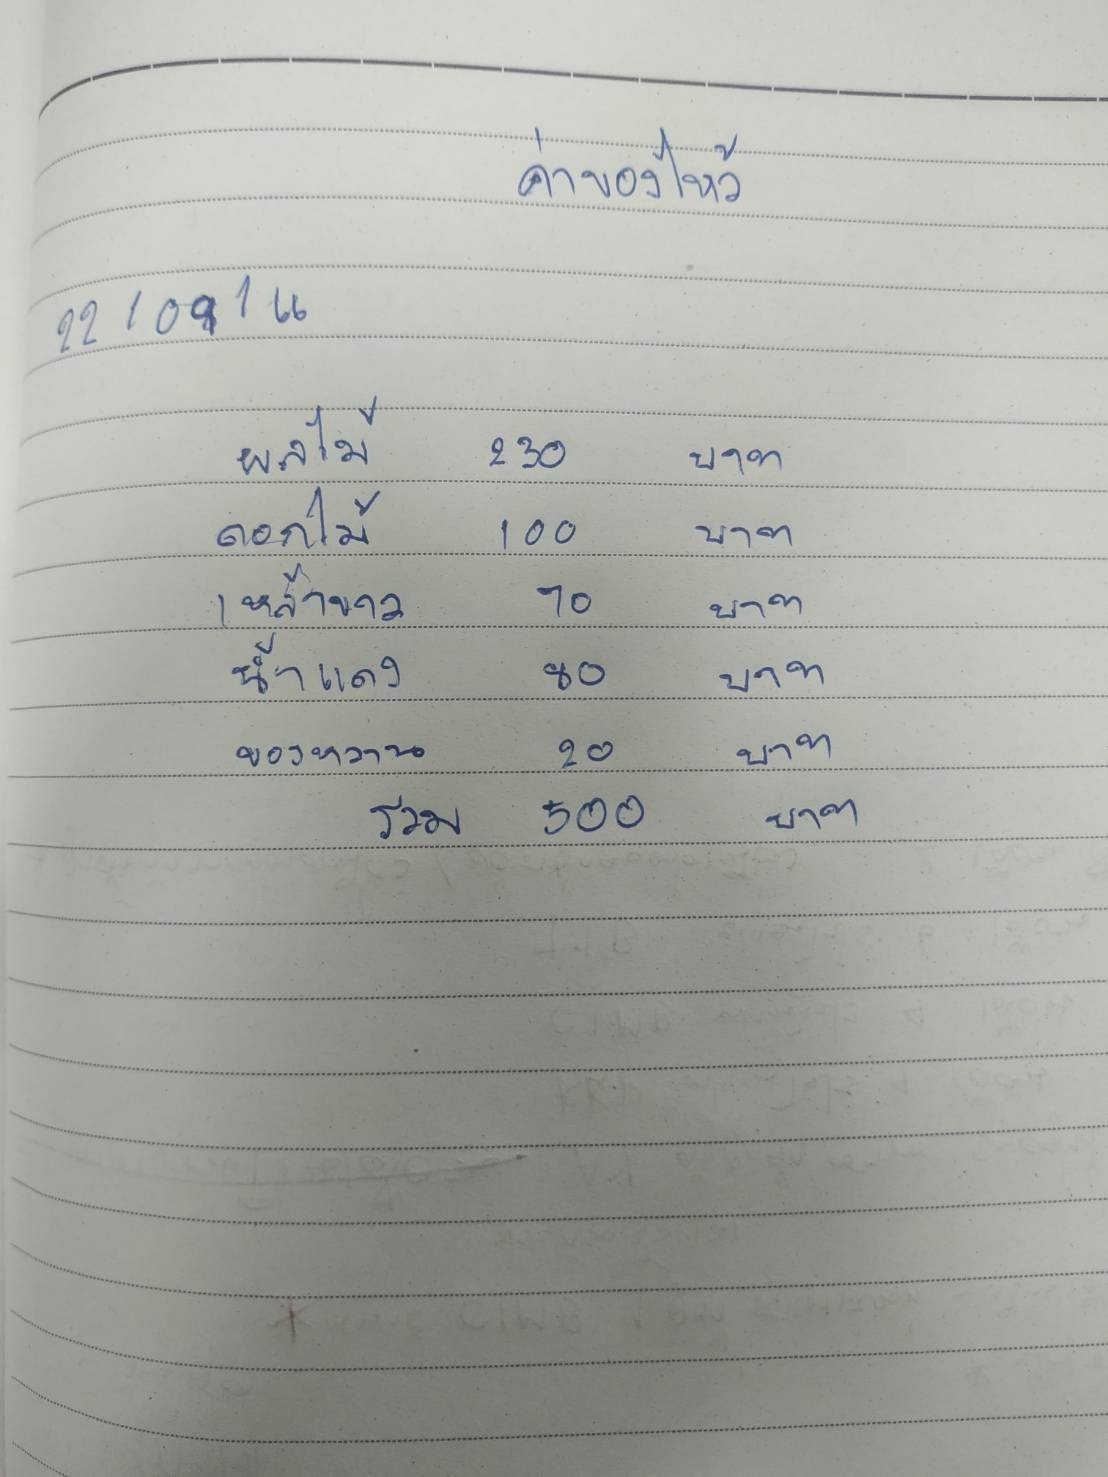 ค่าของไหว้
22 / 09 / 66
ผลไม้ 230 บาท
ดอกไม้ 100 บาท
เหล้าขาว 70 บาท
น้ำแดง 80 บาท
ของหวาน 20 บาท
รวม 500 บาท